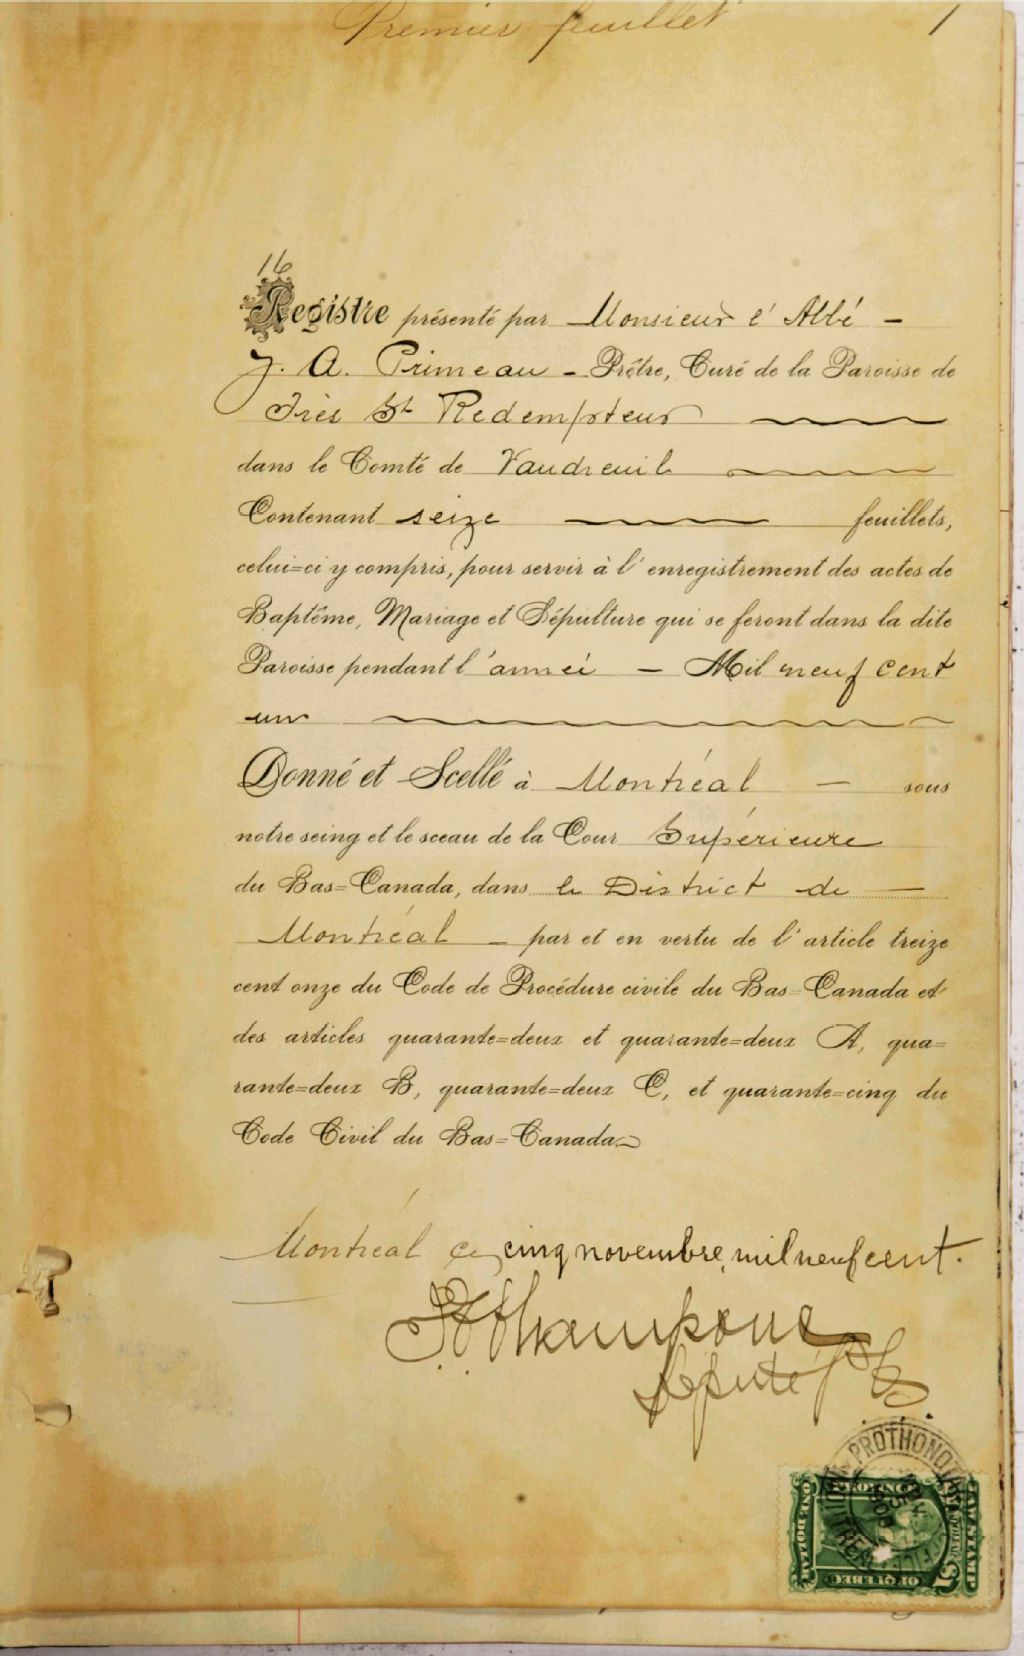 Premier feuillet 1
16
Registre présenté par Monsieur l'Abbé –
J. A. Primeau – Prêtre, Curé de la Paroisse de
Très St Redempteur
dans le Comté de Vaudreuil
Contenant seize feuillets,
celui=ci y compris, pour servir à l'enregistrement des actes de
Baptême, Mariage et Sépulture qui se feront dans la dite
Paroisse pendant l'année – Mil neuf cent
un
Donné et Scellé à Montréal – sous
notre seing et le sceau de la Cour Supérieure
du Bas=Canada, dans le District de –
Montréal – par et en vertu de l'article treize
cent onze du Code de Procédure civile du Bas=Canada et
des articles quarante=deux et quarante=deux A, qua=
rante=deux B, quarante=deux C, et quarante=cinq du
Code Civil du Bas=Canada
Montréal ce cinq novembre, mil neuf cent.
Député P
PROTHONOT
PROVINCE
OF QUEBEC
LAW STAMP
ONE DOLLAR
$1
NOV 5 1900